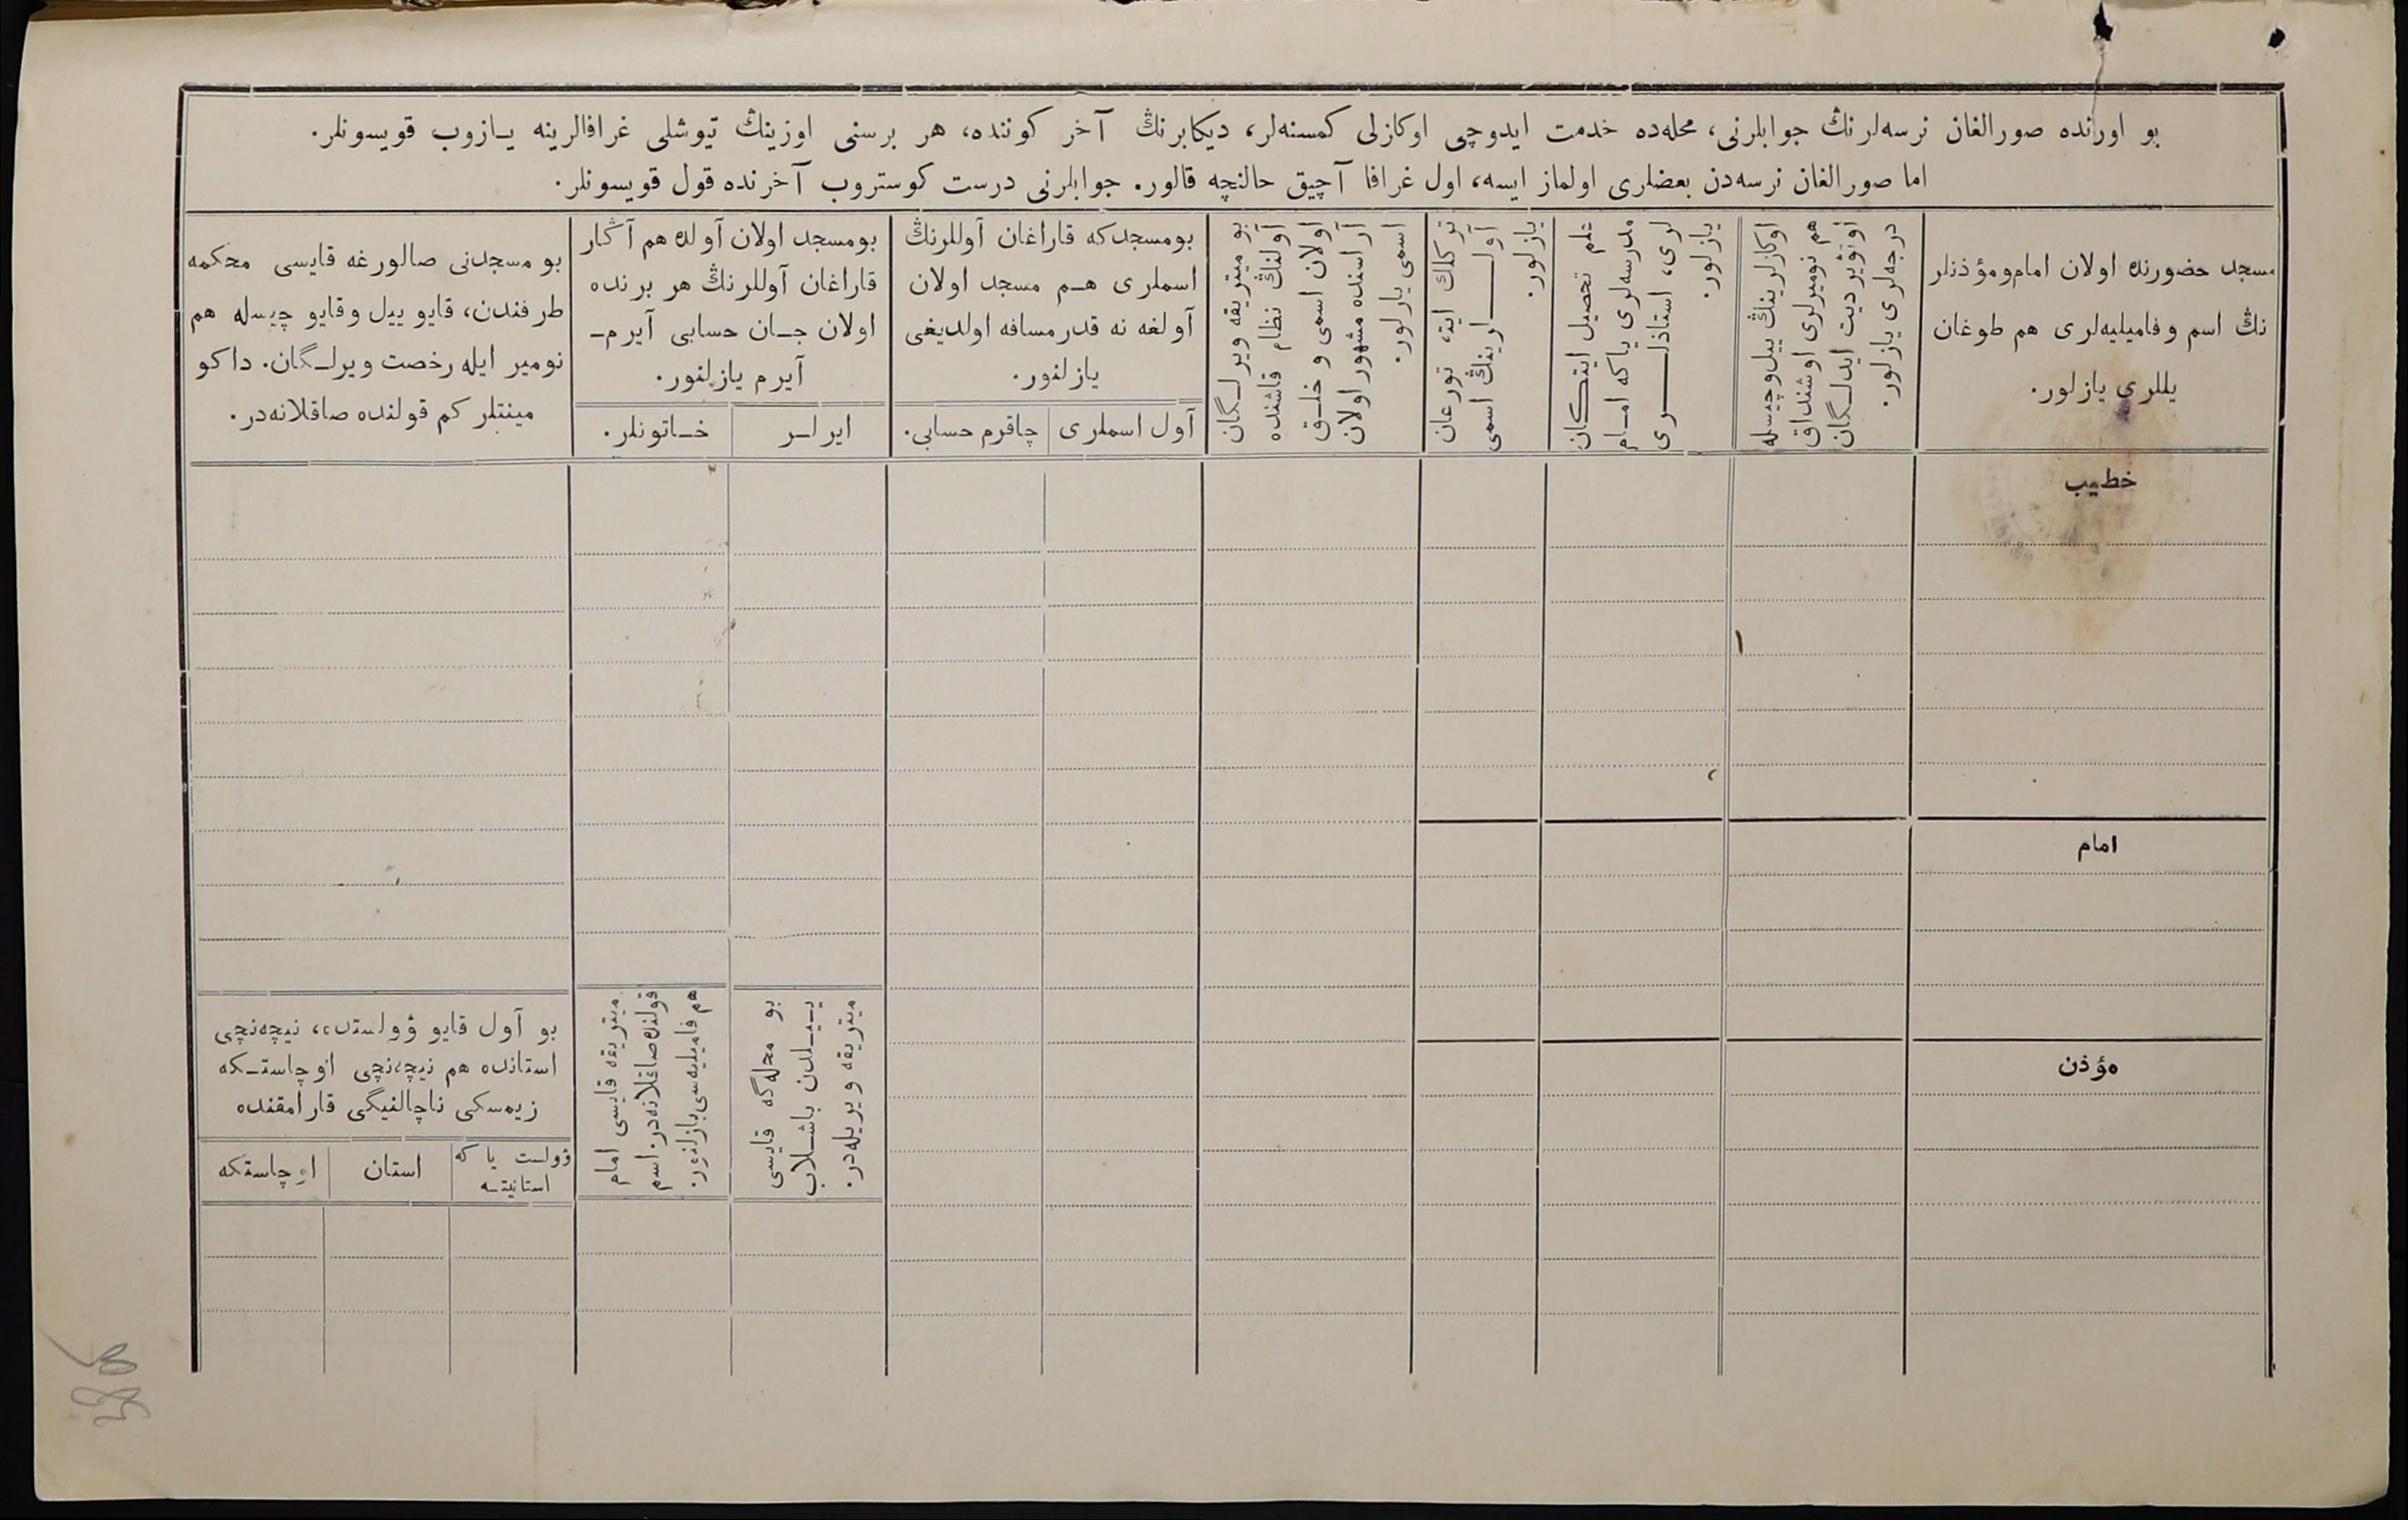 بو اورنده صورالغان نرسه‌لرنڭ جوابلرنی، محله‌ده خدمت ایدوچی اوکازلی کمسنه‌لر، دیکابرنڭ آخر کوننده، هر برسنی اوزینڭ تیوشلی غرافالرینه یازوب قویسونلر.
اما صورالغان نرسه‌دن بعضلری اولماز ایسه، اول غرافا آچیق حالنچه قالور. جوابلرنی درست کوستروب آخرنده قول قویسونلر.
مسجد حضورنده اولان امام و مؤذنلر
نڭ اسم و فامیلیه‌لری هم طوغان
یللری یازلور.
اوکازلرینڭ ییل و چیسله
هم نومیرلری اوشنداق
اوتوێردیت ایدلگان
درجه‌لری یازلور.
علم تحصیل ایتکان
مدرسه‌لری یاکه امام
لری، استاذلری
یازلور.
ترکلك ایته، تورغان
آوللرینڭ اسمی
یازلور.
بو میتریقه ویرلگان
آولنڭ نظام قاشنده
اولان اسمی و خلق
آراسنده مشهور اولان
اسمی یازلور.
بومسجدکه قاراغان آوللرنڭ
اسملری هم مسجد اولان
آولغه نه قدر مسافه اولدیغی
یازلنور.
آول اسملری
چاقرم حسابی.
بومسجد اولان آولده هم آڭار
قاراغان آوللرنڭ هر برنده
اولان جان حسابی آیرم-
آیرم یازلنور.
ایرلر
خاتونلر.
بو مسجدنی صالورغه قایسی محکمه
طرفندن، قایو ییل و قایو چیسله هم
نومیر ایله رخصت ویرلگان. داکو
مینتلر کم قولنده صاقلانه‌در.
خطیب
امام
مؤذن
بو محله‌گه قایسی
ییلدن باشلاب
میتریقه ویریله‌در.
میتریقه قایسی امام
قولنده صاقلانه‌در. اسم
هم فامیلیه‌سی یازلنور.
بو آول قایو ۋولستده، نیچه‌نچی
استانده هم نیچه‌نچی اوچاستکه
زیمسکی ناچالنیگی قارامقنده
ۋولست یاکه
استانیتسه
استان
اوچاستکه